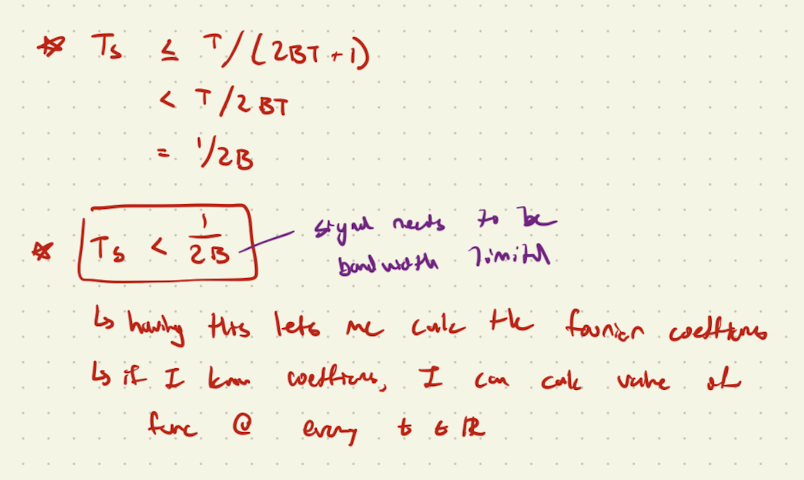 * Ts ≤ T/(2BT + 1)
< T/2BT
= 1/2B
* Ts < 1/2B
signal needs to be
bandwidth limited
↳ having this lets me calc the fourier coefftions
↳ if I know coefftions, I can calc value of
func @ every t ∈ ℝ